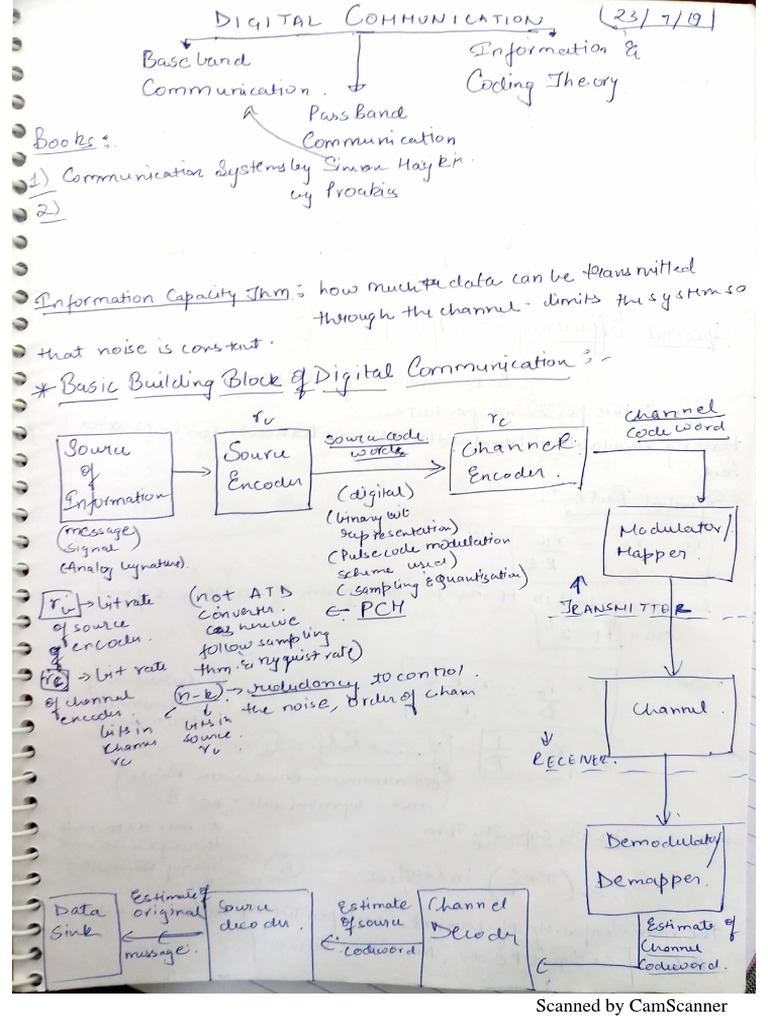 DIGITAL COMMUNICATION
23/7/19
Baseband
Communication.
PassBand
Communication
Information &
Coding Theory
Books:
1) Communication Systems by Simon Haykin.
by Proakis
2)
Information Capacity Thm: how much data can be transmitted
through the channel - limits the system so
that noise is constant.
* Basic Building Block of Digital Communication :-
Source
of
Information
(message)
signal
(Analog in nature).
Source
Encoder
source code
words
(digital)
(binary bit
representation)
(Pulse code modulation
scheme used)
(sampling & Quantisation)
← PCM
rc
Channel
Encoder.
channel
codeword
Modulator/
Mapper.
TRANSMITTOR
→ bit rate
of source
encoder.
(not ATD
converter.
as here we
follow sampling
thm. & nyquist rate)
rc → bit rate
of channel
encoder.
(n-k) → redudancy to control
the noise, order of chann
bits in
channel
rc
bits in
source.
Channel.
RECEIVER.
Demodulator/
Demapper.
Estimate of
Channel
Codeword.
Channel
Decoder
Estimate
of source
codeword
Source
decoder.
Estimate of
original
message.
Data
Sink
Scanned by CamScanner